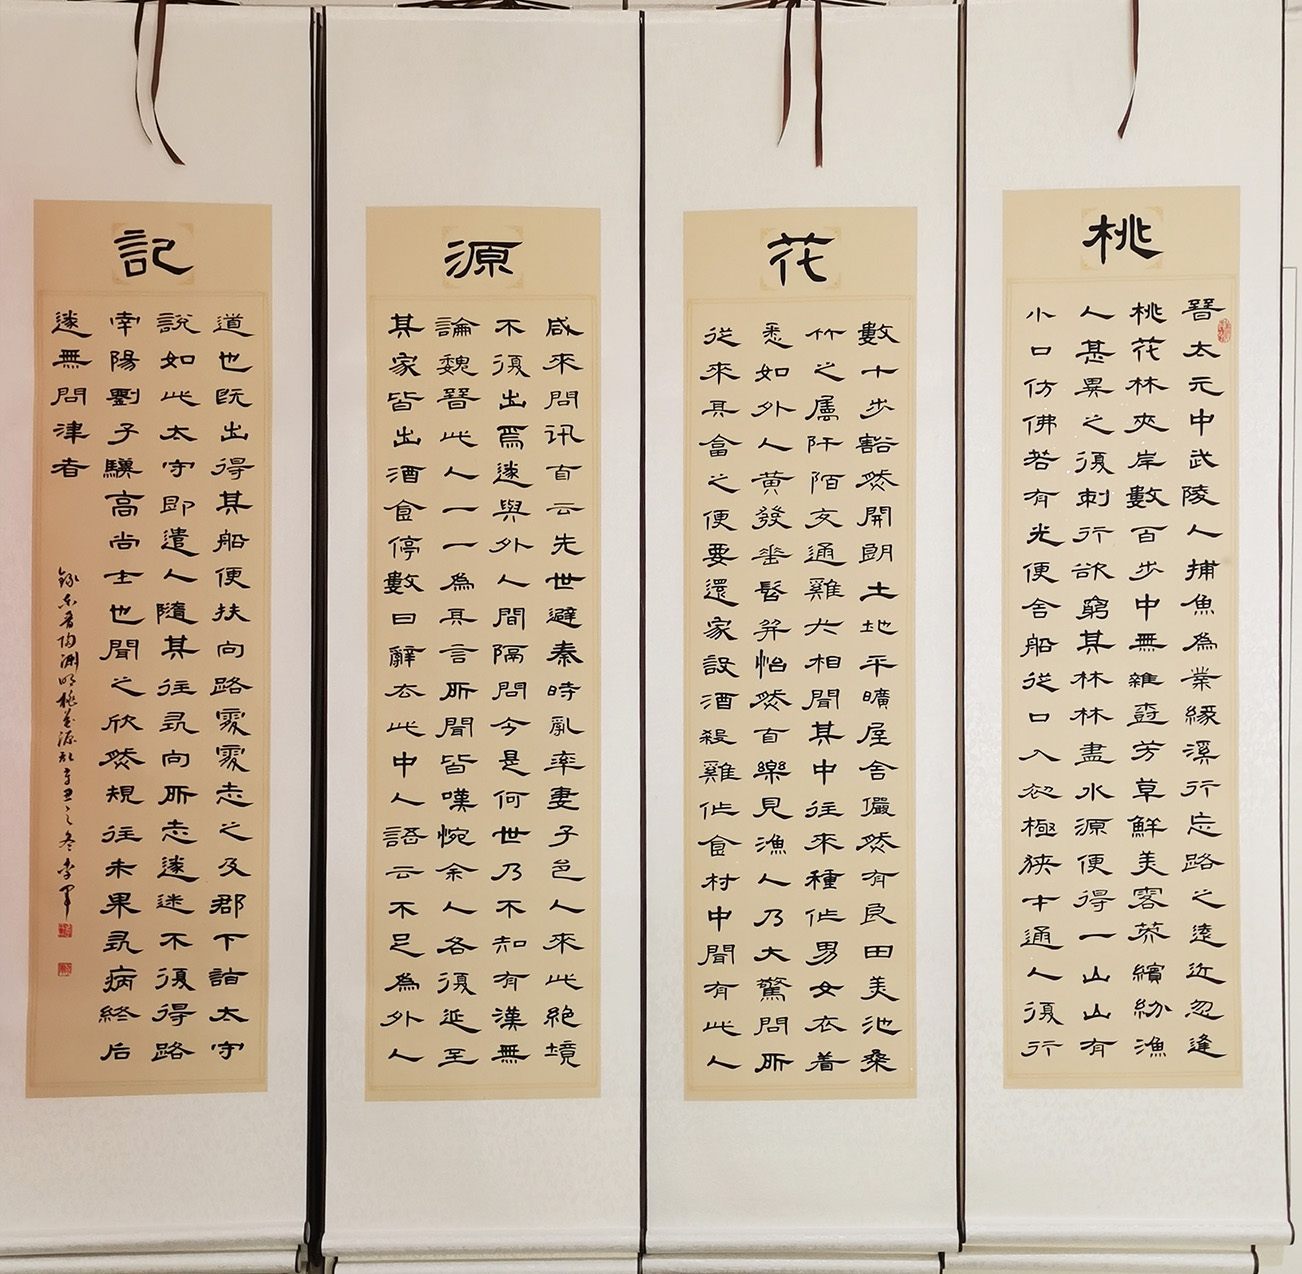 桃
晉太元中武陵人捕魚為業緣溪行忘路之遠近忽逢
桃花林夾岸數百步中無雜樹芳草鮮美落英繽紛漁
人甚異之復前行欲窮其林林盡水源便得一山山有
小口仿佛若有光便舍船從口入初極狹才通人復行
花
數十步豁然開朗土地平曠屋舍儼然有良田美池桑
竹之屬阡陌交通雞犬相聞其中往來種作男女衣着
悉如外人黃發垂髫并怡然自樂見漁人乃大驚問所
從來具答之便要還家設酒殺雞作食村中聞有此人
源
咸來問訊自云先世避秦時亂率妻子邑人來此絕境
不復出焉遂與外人間隔問今是何世乃不知有漢無
論魏晉此人一一為具言所聞皆嘆惋余人各復延至
其家皆出酒食停數日辭去此中人語云不足為外人
記
道也既出得其船便扶向路處處志之及郡下詣太守
說如此太守即遣人隨其往尋向所志遂迷不復得路
南陽劉子驥高尚士也聞之欣然規往未果尋病終后
遂無問津者
錄東晉陶淵明桃花源記辛丑之冬李